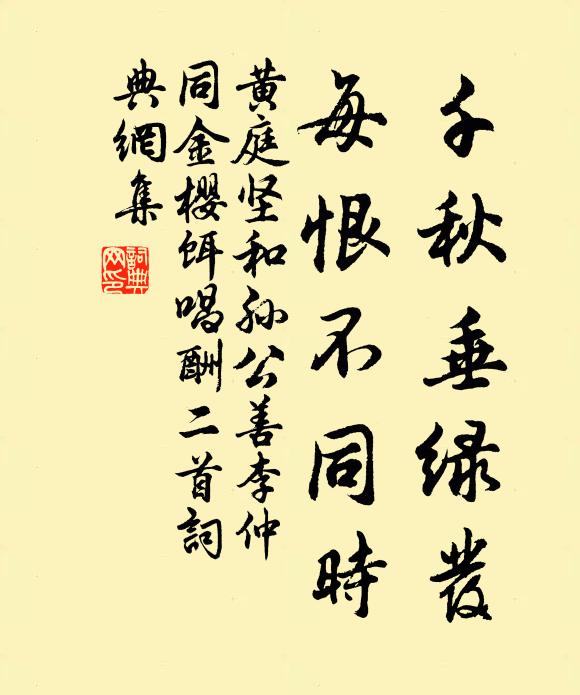 千秋垂绿发
每恨不同時
黄庭坚和孙公善李仲
同金櫻餌唱酬二首詞
典網集
詞典网印